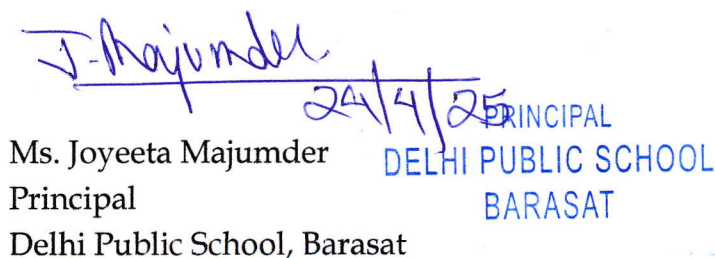 J. Majumder
24/4/25
PRINCIPAL
DELHI PUBLIC SCHOOL
BARASAT
Ms. Joyeeta Majumder
Principal
Delhi Public School, Barasat